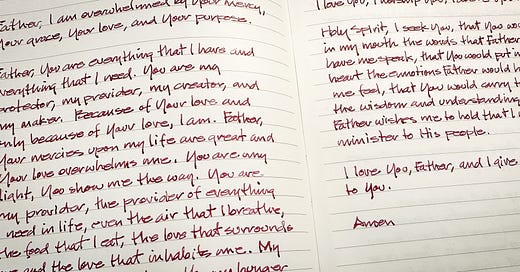 Father, I am overwhelmed by Your mercy,
Your grace, Your love, and Your purpose.
Father, You are everything that I have and
everything that I need. You are my
protector, my provider, my creator, and
my maker. Because of Your love and
only because of Your love, I am. Father,
Your mercies upon my life are great and
Your love overwhelms me. You are my
light, You show me the way. You are
my provider, the provider of everything
I need in life, even the air that I breathe,
the food that I eat, the love that surrounds
me and the love that inhabits me. My
hunger
I love You, I worship You,
Holy Spirit, I seek You, that You wou
in my mouth the words that Father
have me speak, that You would put in
heart the emotions Father would h
me feel, that You would carry t
the wisdom and understanding
Father wishes me to hold that I
minister to His people.
I love You, Father, and I give
to You.
Amen